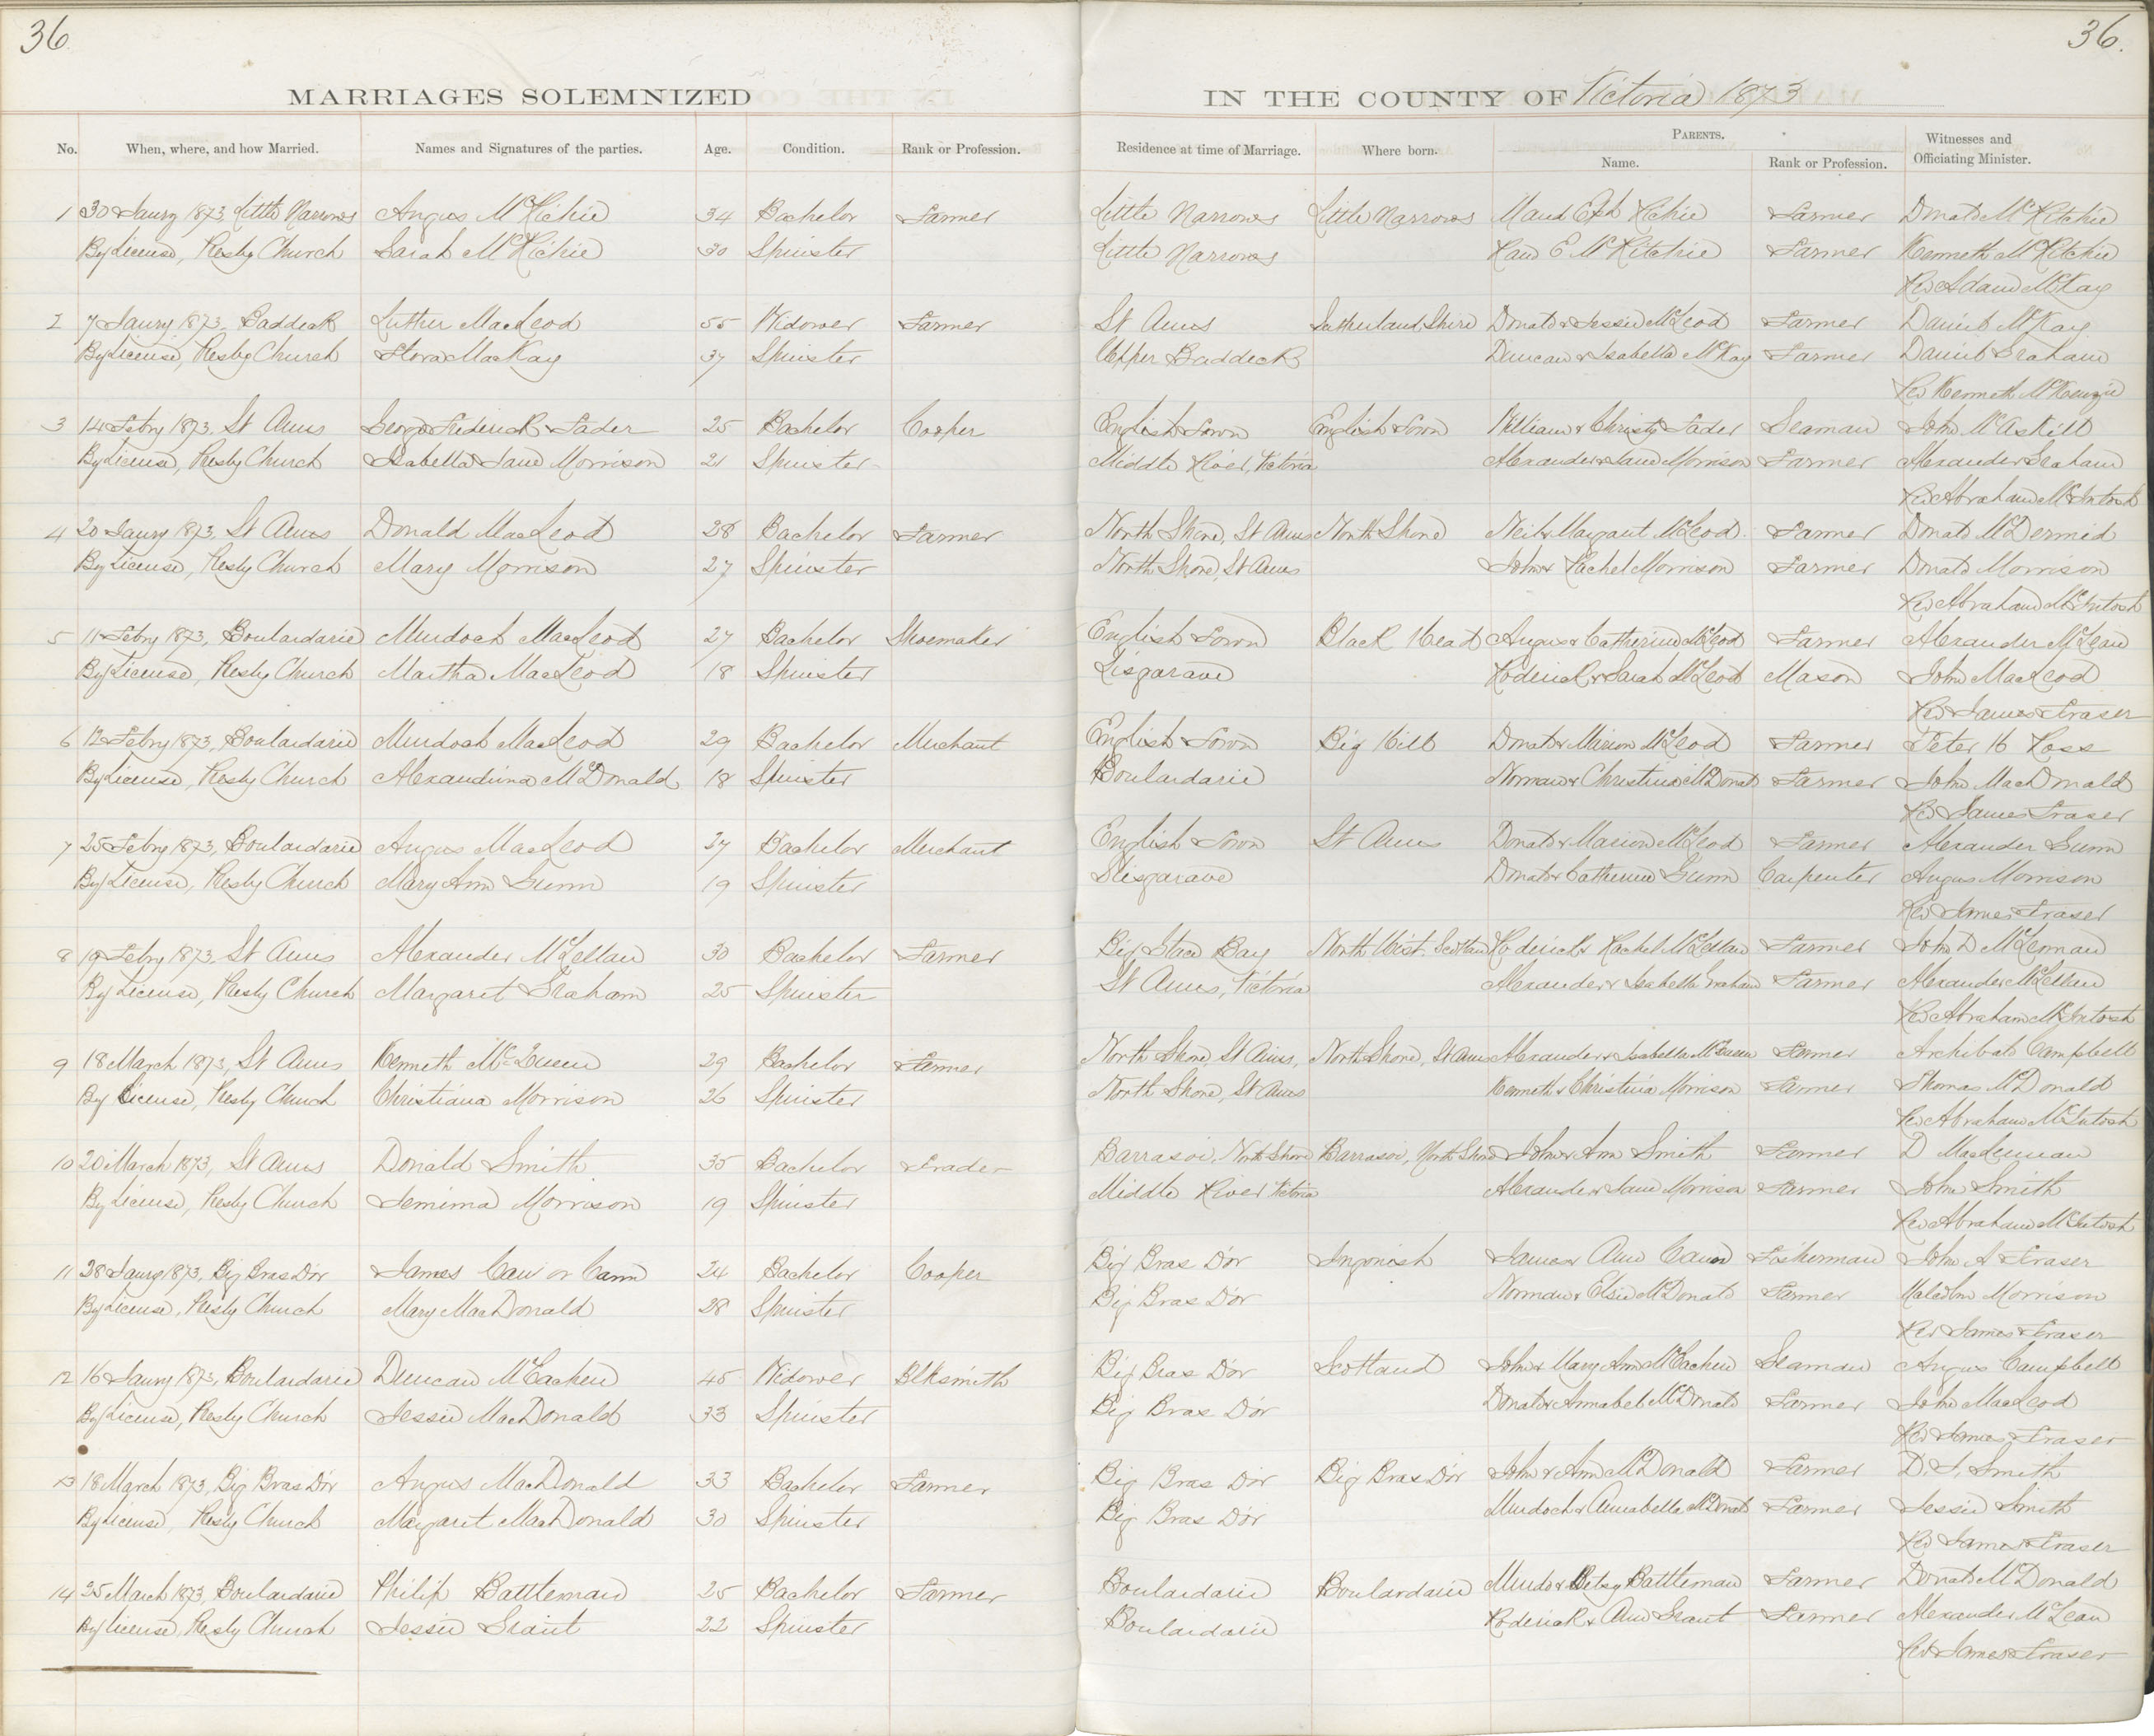 36
36.
MARRIAGES SOLEMNIZED IN THE COUNTY OF Victoria 1873
No. When, where, and how Married. Names and Signatures of the parties. Age. Condition. Rank or Profession. Residence at time of Marriage. Where born. PARENTS. Name. Rank or Profession. Witnesses and Officiating Minister.
1 30 Jaury 1873, Little Narrows Angus McRichie 34 Bachelor Farmer Little Narrows Little Narrows Richie Farmer Donald McRitchie
By License, Presby Church Sarah McRichie 30 Spinster Little Narrows McRitchie Farmer Kenneth McRitchie
Rev Adam McKay
2 7 Jaury 1873, Baddeck Luther MacLeod 55 Widower Farmer St Anns Sutherland Shire Donald & Jessie McLeod Farmer Daniel McKay
By License, Presby Church Flora MacKay 37 Spinster Upper Baddeck Duncan & Isabella McKay Farmer Daniel Graham
Rev Kenneth McKenzie
3 14 Febry 1873, St Anns George Frederick Fader 25 Bachelor Cooper English Town English Town William & Christy Fader Seaman John McAskill
By License, Presby Church Isabella Jane Morrison 21 Spinster Middle River, Victoria Alexander & Jane Morrison Farmer Alexander Graham
Rev Abraham McIntosh
4 20 Jaury 1873, St Anns Donald MacLeod 28 Bachelor Farmer North Shore, St Anns North Shore Neil & Margaret McLeod Farmer Donald McDermid
By License, Presby Church Mary Morrison 27 Spinster North Shore, St Anns John & Rachel Morrison Farmer Donald Morrison
Rev Abraham McIntosh
5 11 Febry 1873, Boulardarie Murdoch MacLeod 27 Bachelor Shoemaker English Town Black Head Angus & Catherine McLeod Farmer Alexander McLean
By License, Presby Church Martha MacLeod 18 Spinster Lisgarave Roderick & Sarah McLeod Mason John MacLeod
Rev James Fraser
6 12 Febry 1873, Boulardarie Murdoch MacLeod 29 Bachelor Merchant English Town Big Hill Donald & Marion McLeod Farmer Peter H Ross
By License, Presby Church Alexandrina McDonald 18 Spinster Boulardarie Norman & Christina McDonald Farmer John MacDonald
Rev James Fraser
7 25 Febry 1873, Boulardarie Angus MacLeod 27 Bachelor Merchant English Town St Anns Donald & Marion McLeod Farmer Alexander Gunn
By License, Presby Church Mary Ann Gunn 19 Spinster Slisgarave Donald & Catherine Gunn Carpenter Angus Morrison
Rev James Fraser
8 19 Febry 1873, St Anns Alexander McLellan 30 Bachelor Farmer Big Glace Bay North Uist, Scotland Roderick & Rachel McLellan Farmer John D McLennan
By License, Presby Church Margaret Graham 25 Spinster St Anns, Victoria Alexander & Isabella Graham Farmer Alexander McLellan
Rev Abraham McIntosh
9 18 March 1873, St Anns Kenneth McQueen 29 Bachelor Farmer North Shore, St Anns, North Shore, St Anns Alexander & Isabella McQueen Farmer Archibald Campbell
By License, Presby Church Christiana Morrison 26 Spinster North Shore, St Anns Kenneth & Christina Morrison Farmer Thomas McDonald
Rev Abraham McIntosh
10 20 March 1873, St Anns Donald Smith 35 Bachelor Trader Barrasoi, North Shore Barrasoi, North Shore John & Ann Smith Farmer D MacLennan
By License, Presby Church Jemima Morrison 19 Spinster Middle River Victoria Alexander & Jane Morrison Farmer John Smith
Rev Abraham McIntosh
11 28 Jaury 1873, Big Bras D'or James Caw or Cann 24 Bachelor Cooper Big Bras D'or Ingonish James & Ann Cann Fisherman John A Fraser
By License, Presby Church Mary MacDonald 28 Spinster Big Bras D'or Norman & Elsie McDonald Farmer Malcolm Morrison
Rev James Fraser
12 16 Jaury 1873, Boulardarie Duncan McEachen 45 Widower Blksmith Big Bras D'or Scotland John & Mary Ann McEachen Seaman Angus Campbell
By License, Presby Church Jessie MacDonald 33 Spinster Big Bras D'or Donald & Annabel McDonald Farmer John MacLeod
Rev James Fraser
13 18 March 1873, Big Bras D'or Angus MacDonald 33 Bachelor Farmer Big Bras D'or Big Bras D'or John & Ann McDonald Farmer D. J. Smith
By License, Presby Church Margaret MacDonald 30 Spinster Big Bras D'or Murdoch & Annabella McDonald Farmer Jessie Smith
Rev James Fraser
14 25 March 1873, Boulardarie Philip Battleman 25 Bachelor Farmer Boulardarie Boulardarie Murdo & Betsy Battleman Farmer Donald McDonald
By License, Presby Church Jessie Grant 22 Spinster Boulardarie Roderick & Ann Grant Farmer Alexander McLean
Rev James Fraser